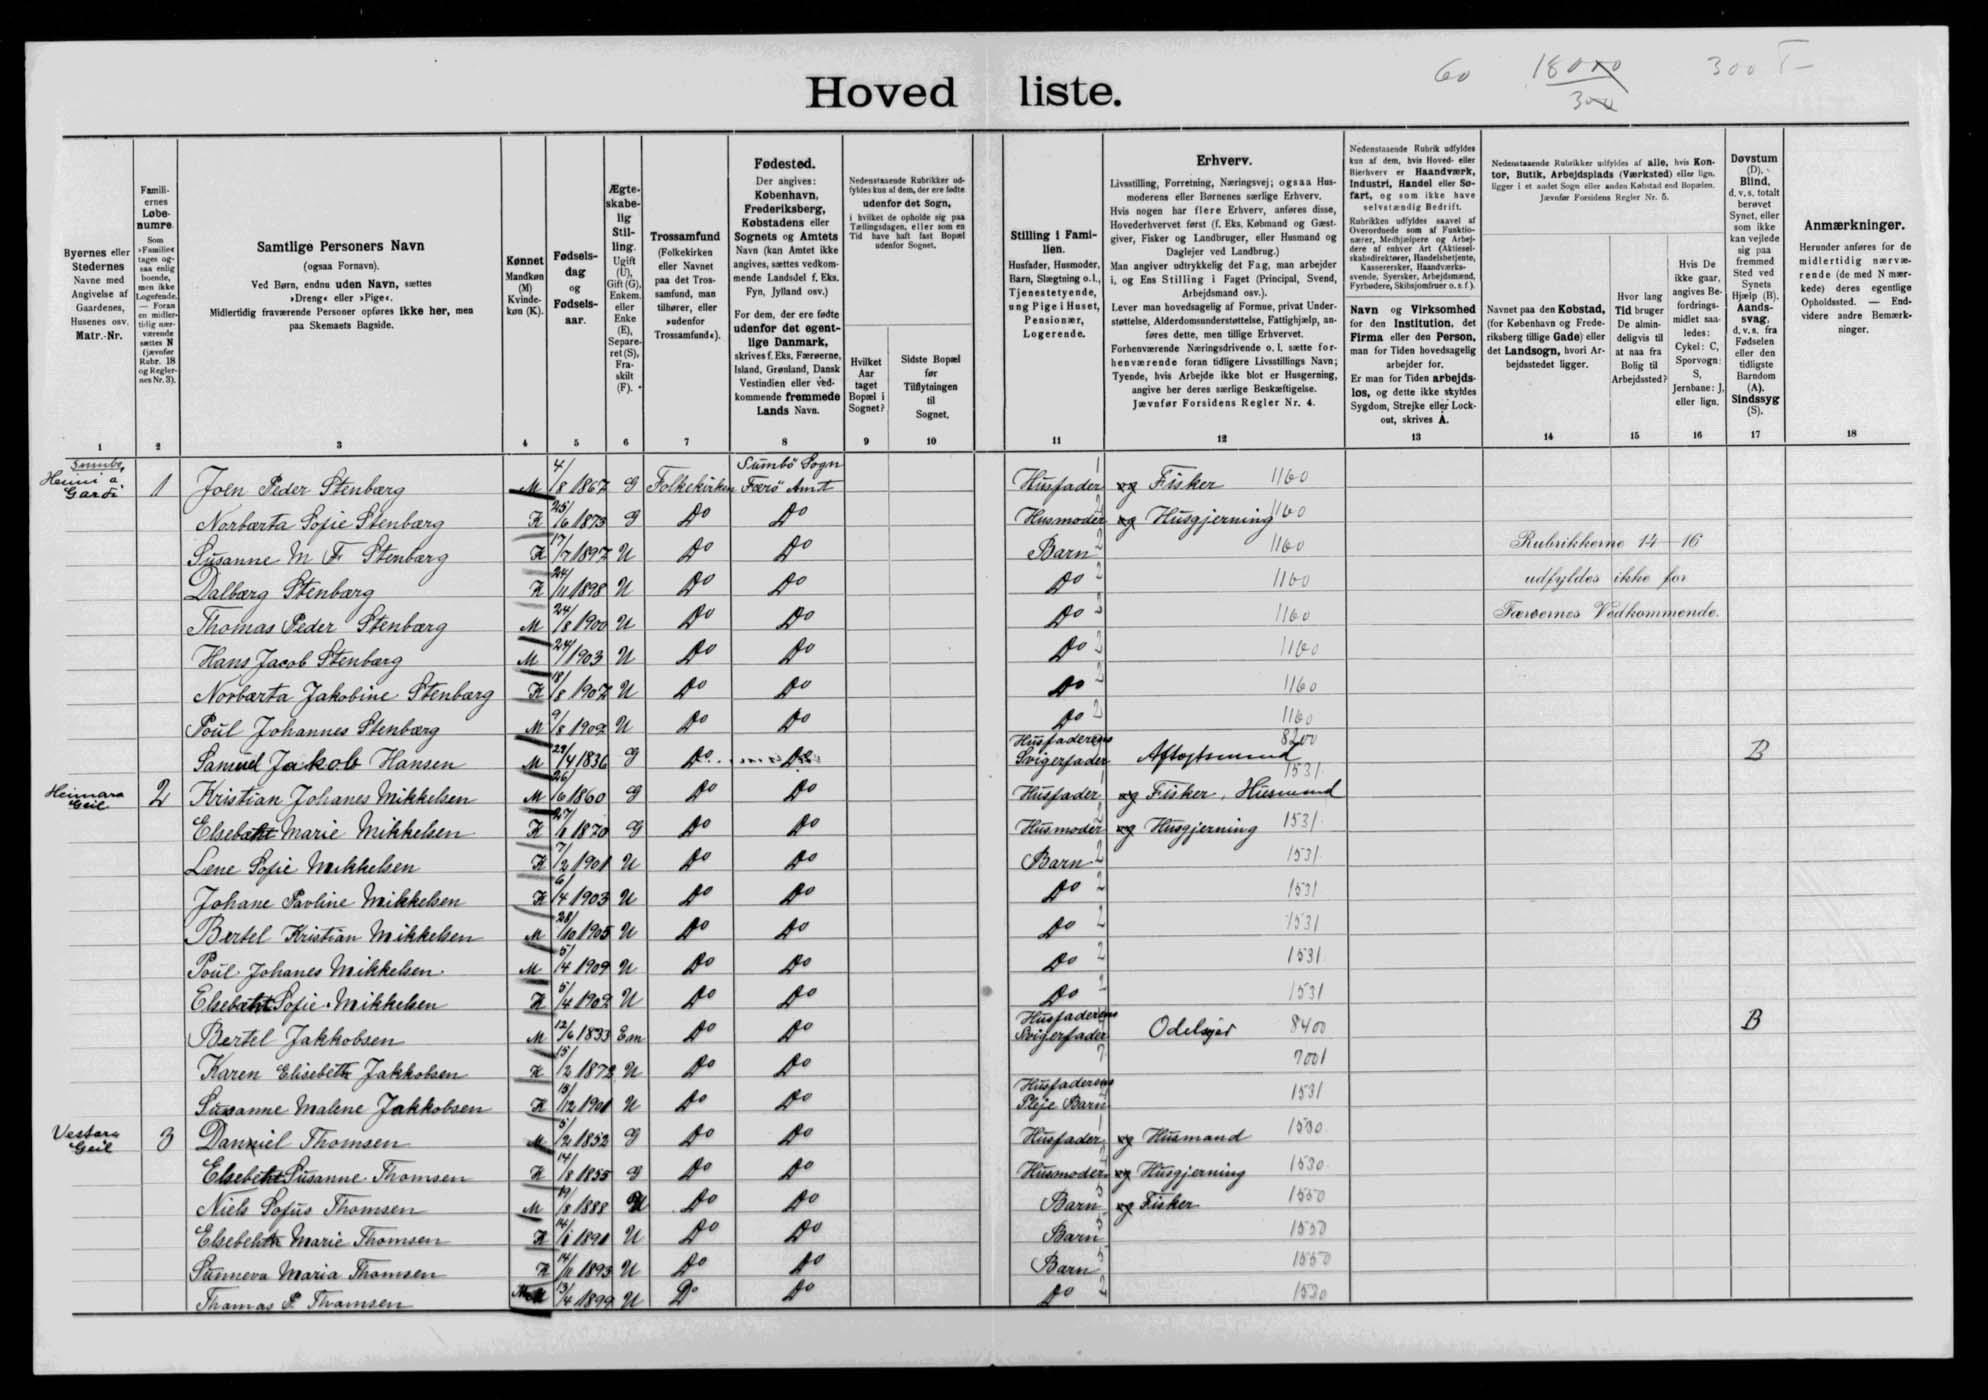 60 18000 300 300 T—
Hoved liste.
Byernes eller Stedernes Navne med Angivelse af Gaardenes, Husenes osv. Matr.-Nr.
Familiernes Løbenumre. Som »Familie« tages ogsaa enlig boende, men ikke Logefende. — Foran en midlertidig nærværende sættes N (jævnfør Rubr. 18 og Reglernes Nr. 3).
Samtlige Personers Navn
(ogsaa Fornavn).
Ved Børn, endnu uden Navn, sættes
»Dreng« eller »Pige«.
Midlertidig fraværende Personer opføres ikke her, men
paa Skemaets Bagside.
Kønnet Mandkøn (M) Kvindekøn (K).
Fødselsdag og Fødselsaar.
Ægteskabelig Stilling. Ugift (U), Gift (G), Enkem. eller Enke (E), Separeret (S), Fraskilt (F).
Trossamfund (Folkekirken eller Navnet paa det Trossamfund, man tilhører, eller »udenfor Trossamfund«).
Fødested.
Der angives: København, Frederiksberg, Købstadens eller Sognets og Amtets Navn (kan Amtet ikke angives, sættes vedkommende Landsdel f. Eks. Fyn, Jylland osv.)
For dem, der ere fødte udenfor det egentlige Danmark, skrives f. Eks. Færøerne, Island, Grønland, Dansk Vestindien eller vedkommende fremmede Lands Navn.
Nedenstaaende Rubrikker udfyldes kun af dem, der ere fødte udenfor det Sogn, i hvilket de opholde sig paa Tællingsdagen, eller som en Tid have haft fast Bopæl udenfor Sognet.
Hvilket Aar taget Bopæl i Sognet?
Sidste Bopæl før Tilflytningen til Sognet.
Stilling i Familien.
Husfader, Husmoder, Barn, Slægtning o.l., Tjenestetyende, ung Pige i Huset, Pensionær, Logerende.
Erhverv.
Livsstilling, Forretning, Næringsvej; ogsaa Husmoderens eller Børnenes særlige Erhverv.
Hvis nogen har flere Erhverv, anføres disse, Hovederhvervet først (f. Eks. Købmand og Gæstgiver, Fisker og Landbruger, eller Husmand og Daglejer ved Landbrug.)
Man angiver udtrykkelig det Fag, man arbejder i, og Ens Stilling i Faget (Principal, Svend, Arbejdsmand osv.).
Lever man hovedsagelig af Formue, privat Understøttelse, Alderdomsunderstøttelse, Fattighjælp, anføres dette, men tillige Erhvervet.
Forhenværende Næringsdrivende o. l. sætte forhenværende foran tidligere Livsstillings Navn;
Tyende, hvis Arbejde ikke blot er Husgerning, angive her deres særlige Beskæftigelse.
Jævnfør Forsidens Regler Nr. 4.
Nedenstaaende Rubrik udfyldes kun af dem, hvis Hoved- eller Bierhverv er Haandværk, Industri, Handel eller Søfart, og som ikke have selvstændig Bedrift.
Rubrikken udfyldes saavel af Overordnede som af Funktionærer, Medhjælpere og Arbejdere af enhver Art (Aktieselskabsdirektører, Handelsbetjente, Kasserersker, Haandværkssvende, Syersker, Arbejdsmænd, Fyrbødere, Skibsjomfruer o. s. f.).
Navn og Virksomhed for den Institution, det Firma eller den Person, man for Tiden hovedsagelig arbejder for.
Er man for Tiden arbejdsløs, og dette ikke skyldes Sygdom, Strejke eller Lockout, skrives A.
Nedenstaaende Rubrikker udfyldes af alle, hvis Kontor, Butik, Arbejdsplads (Værksted) eller lign. ligger i et andet Sogn eller anden Købstad end Bopælen. Jævnfør Forsidens Regler Nr. 5.
Navnet paa den Købstad, (for København og Frederiksberg tillige Gade) eller det Landsogn, hvori Arbejdsstedet ligger.
Hvor lang Tid bruger De almindeligvis til at naa fra Bolig til Arbejdssted?
Hvis De ikke gaar, angives Befordringsmidlet saaledes: Cykel: C, Sporvogn: S, Jernbane: J, eller lign.
Døvstum (D), Blind, d. v. s. totalt berøvet Synet, eller som ikke kan vejlede sig paa fremmed Sted ved Synets Hjælp (B). Aandssvag, d. v. s. fra Fødselen eller den tidligste Barndom (A). Sindssyg (S).
Anmærkninger.
Herunder anføres for de midlertidig nærværende (de med N mærkede) deres egentlige Opholdssted. — Endvidere andre Bemærkninger.
1 2 3 4 5 6 7 8 9 10 11 12 13 14 15 16 17 18
Sumbø, Heimi a Gardi 1 Joen Peder Stenbærg M 4/8 1867 G Folkekirken Sumbö Sogn Færö Amt Husfader 1 og Fisker 1160
Norbærta Sofie Stenbærg K 25/6 1873 G Do Do Husmoder 2 og Husgjerning 1160
Susanne M F Stenbærg K 17/7 1897 U Do Do Barn 2 1160 Rubrikkerne 14—16
Dalbærg Stenbærg K 24/11 1898 U Do Do Do 2 1160 udfyldes ikke for
Thomas Peder Stenbærg M 24/8 1900 U Do Do Do 2 1160 Færøernes Vedkommende.
Hans Jacob Stenbærg M 24/1 1903 U Do Do Do 2 1160
Norbærta Jakobine Stenbærg K 18/8 1907 U Do Do Do 2 1160
Poul Johannes Stenbærg M 9/8 1909 U Do Do Do 2 1160
Samuel Jakob Hansen M 29/4 1836 G Do Do Husfaderens Svigerfader Aftægtsmand 8200 B
Heimara Geil 2 Kristian Johanes Mikkelsen M 26/6 1860 G Do Do Husfader 1 og Fisker, Husmand 1531
Elsebæht Marie Mikkelsen K 27/8 1870 G Do Do Husmoder 2 og Husgjerning 1531
Lene Sofie Mikkelsen K 7/2 1901 U Do Do Barn 2 1531
Johane Pavline Mikkelsen K 6/4 1903 U Do Do Do 2 1531
Bertel Kristian Mikkelsen M 28/10 1905 U Do Do Do 2 1531
Poul Johanes Mikkelsen M 5/4 1909 U Do Do Do 2 1531
Elsebæht Sofie Mikkelsen K 5/4 1909 U Do Do Do 2 1531
Bertel Jakkobsen M 12/6 1833 Em Do Do Husfaderens Svigerfader Odelsejer 8400 B
Karen Elisebeth Jakkobsen K 15/2 1872 U Do Do 7001
Susanne Malene Jakkobsen K 13/12 1901 U Do Do Husfaderens Pleje Barn 1531
Vestara Geil 3 Daniel Thomsen M 5/2 1852 G Do Do Husfader 1 og Husmand 1530
Elsebeht Susanne Thomsen K 14/8 1855 G Do Do Husmoder 2 og Husgjerning 1530
Niels Sofus Thomsen M 19/8 1888 U Do Do Barn 5 og Fisker 1550
Elsebeht Marie Thomsen K 14/1 1891 U Do Do Barn 5 1550
Sunneva Maria Thomsen K 14/11 1893 U Do Do Barn 5 1550
Thomas P. Thomsen M 13/4 1899 U Do Do Do 2 1530